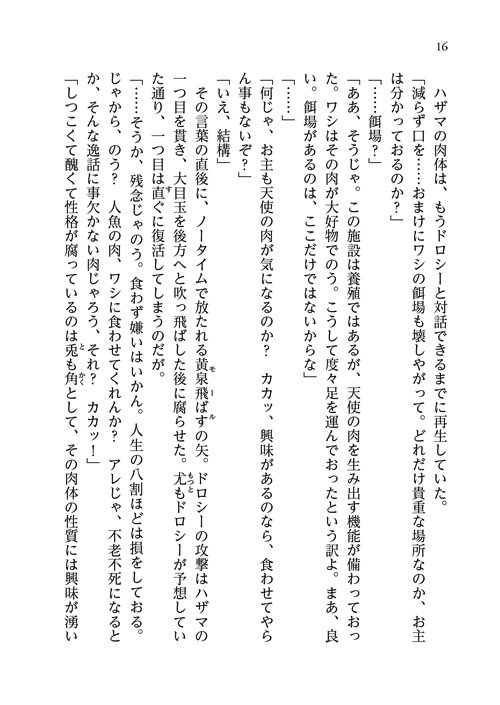 16
　ハザマの肉体は、もうドロシーと対話できるまでに再生していた。
「減らず口を……おまけにワシの餌場も壊しやがって。どれだけ貴重な場所なのか、お主
は分かっておるのか？」
「……餌場？」
「ああ、そうじゃ。この施設は養殖ではあるが、天使の肉を生み出す機能が備わっておっ
た。ワシはその肉が大好物でのう。こうして度々足を運んでおったという訳よ。まあ、良
い。餌場があるのは、ここだけではないからな」
「……」
「何じゃ、お主も天使の肉が気になるのか？　カカッ、興味があるのなら、食わせてやら
ん事もないぞ？」
「いえ、結構」
　その言葉の直後に、ノータイムで放たれる黄泉飛ばす（モール）の矢。ドロシーの攻撃はハザマの
一つ目を貫き、大目玉を後方へと吹っ飛ばした後に腐らせた。尤（もっと）もドロシーが予想してい
た通り、一つ目は直（す）ぐに復活してしまうのだが。
「……そうか、残念じゃのう。食わず嫌いはいかん。人生の八割ほどは損をしておる。
じゃから、のう？　人魚の肉、ワシに食わせてくれんか？　アレじゃ、不老不死になると
か、そんな逸話に事欠かない肉じゃろう、それ？　カカッ！」
「しつこくて醜くて性格が腐っているのは兎（と）も角（かく）として、その肉体の性質には興味が湧い